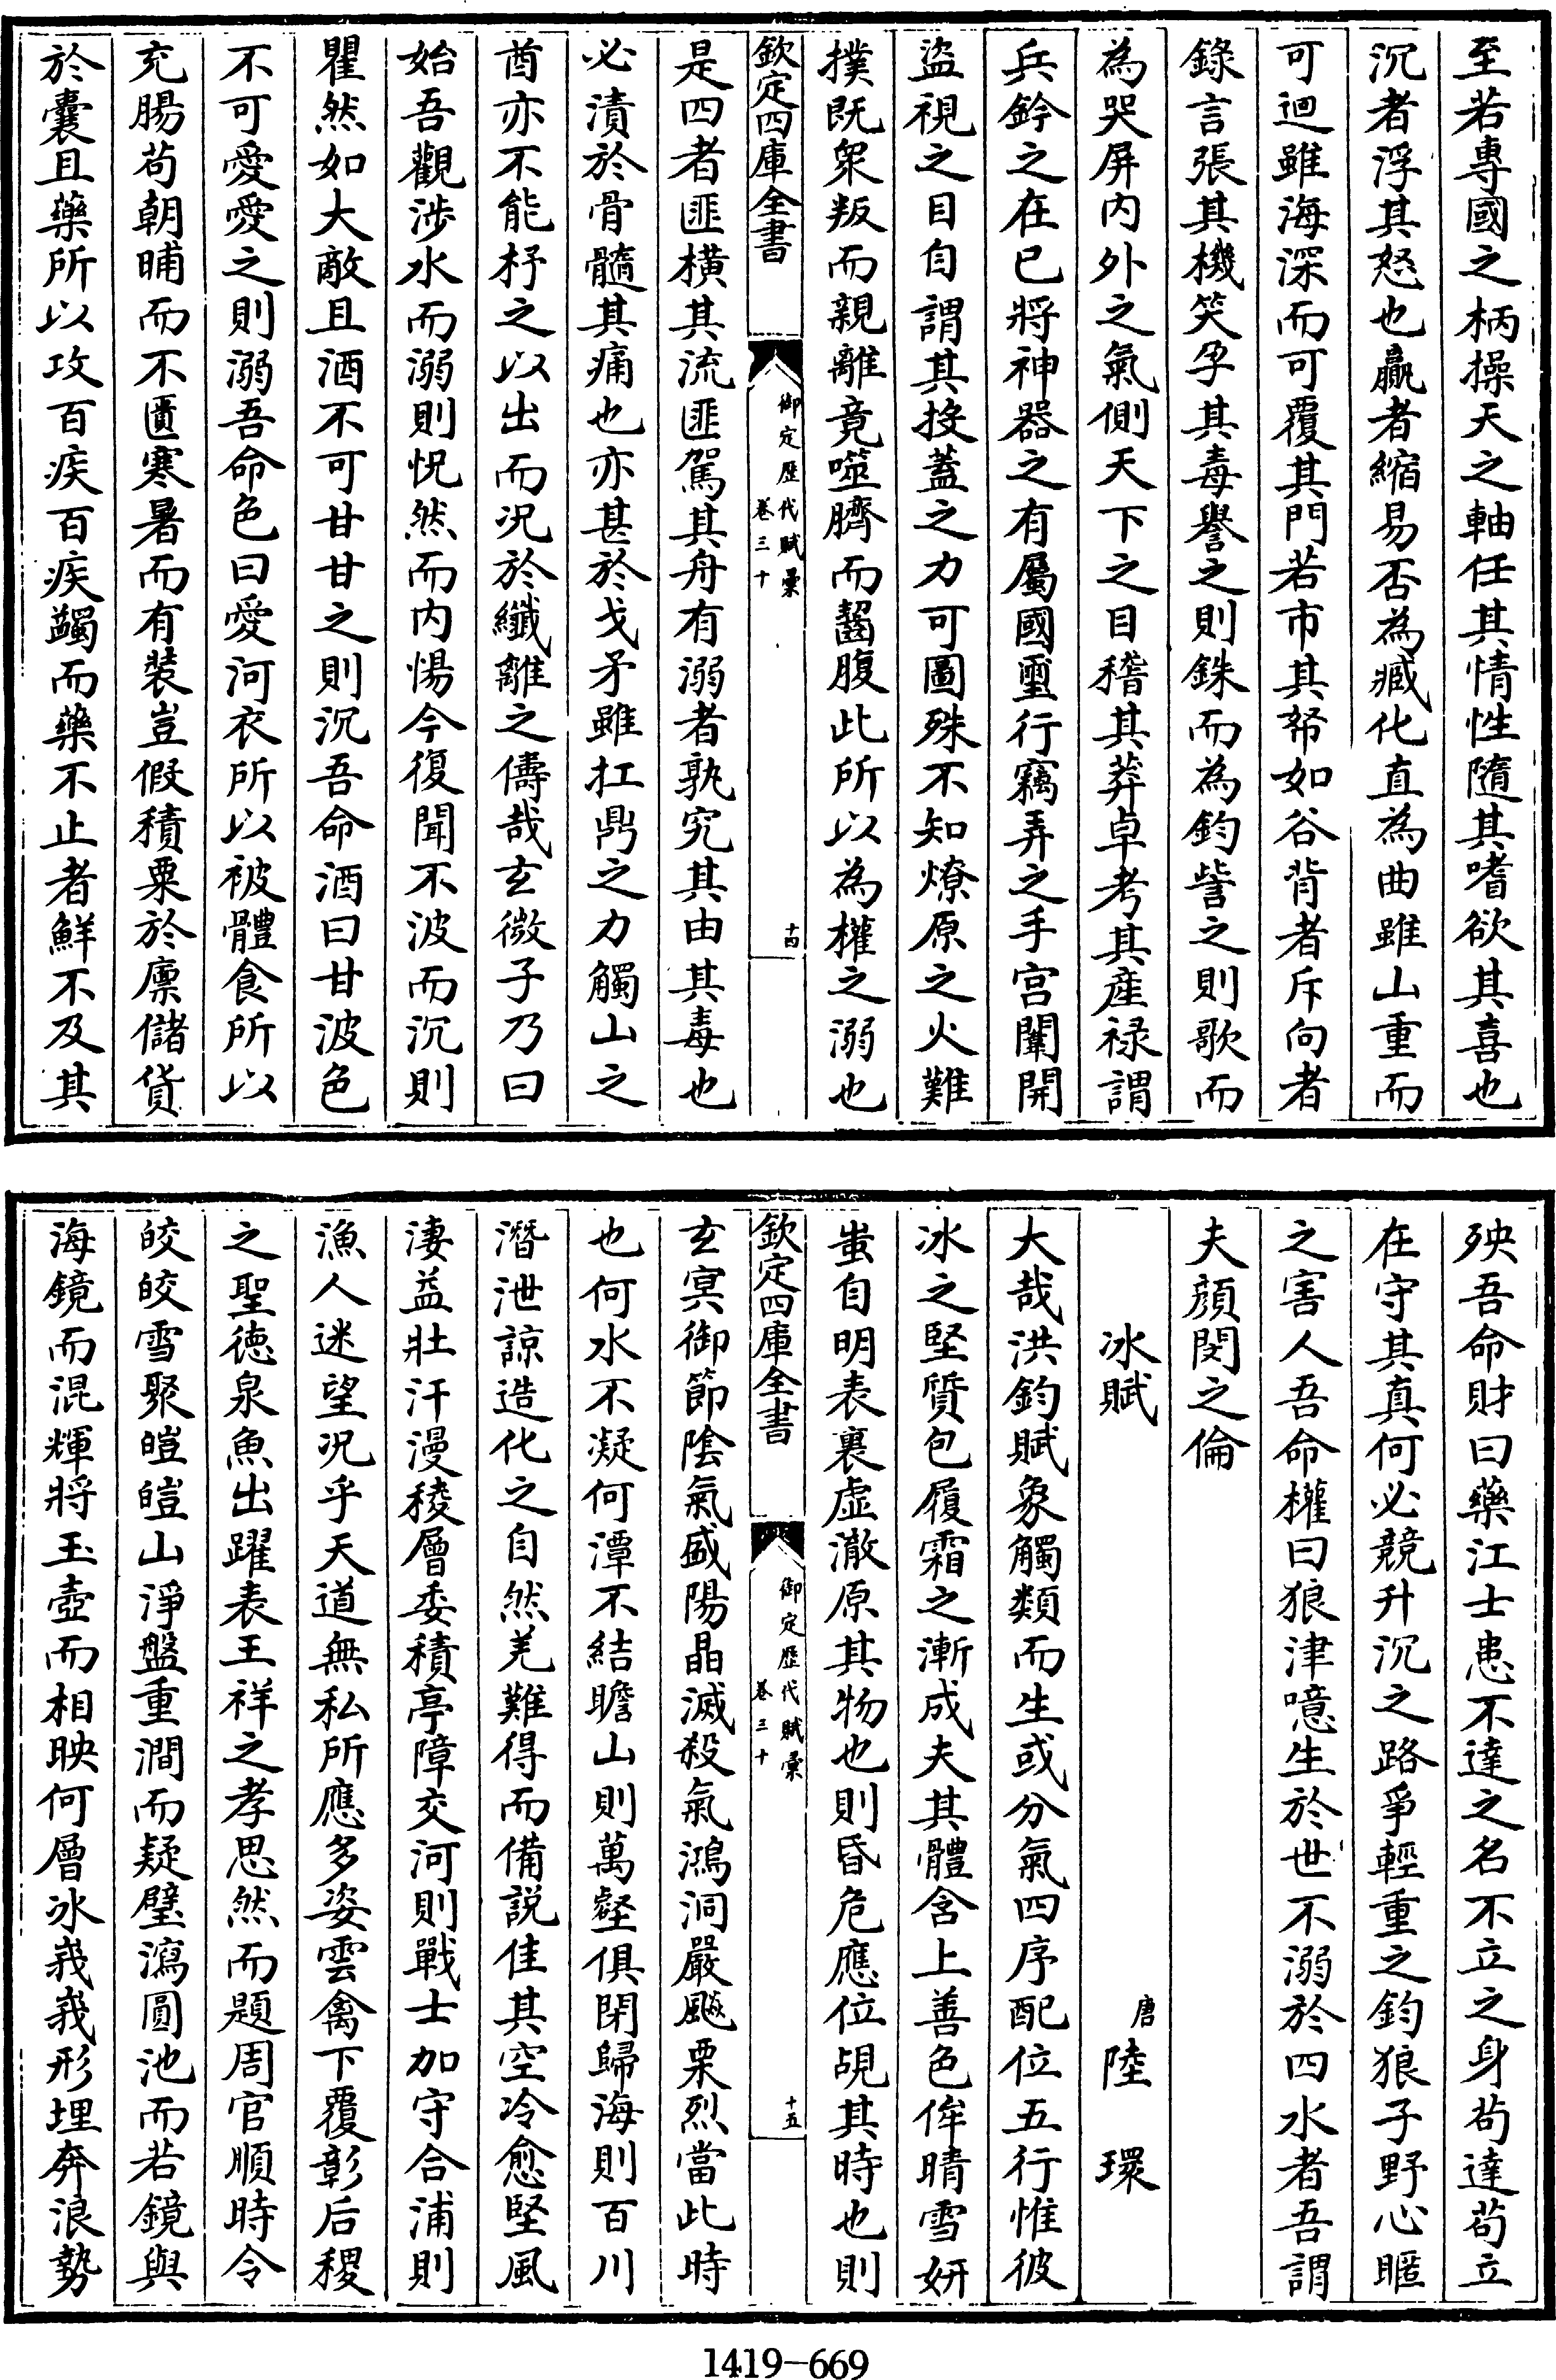 至若專國之柄操天之軸任其情性隨其嗜欲其喜也
沉者浮其怒也贏者縮易否為臧化直為曲雖山重而
可迴雖海深而可覆其門若市其帑如谷背者斥向者
錄言張其機笑孕其毒譽之則銖而為鈞訾之則歌而
為哭屏内外之氣側天下之目稽其莽卓考其産祿謂
兵鈐之在已將神器之有屬國璽行竊弄之手宫闈開
盜視之目自謂其㧞蓋之力可圖殊不知燎原之火難
撲既衆叛而親離竟噬臍而齧腹此所以為權之溺也
欽定四庫全書
御定歴代賦彙
卷三十
十四
是四者匪横其流匪駕其舟有溺者孰究其由其毒也
必漬於骨髓其痛也亦甚於戈矛雖扛鼎之力觸山之
酋亦不能杼之以出而况於纎離之儔哉玄微子乃曰
始吾觀涉水而溺則怳然而内愓今復聞不波而沉則
瞿然如大敵且酒不可甘甘之則沉吾命酒曰甘波色
不可愛愛之則溺吾命色曰愛河衣所以被體食所以
充腸苟朝晡而不匱寒暑而有裝豈假積粟於廩儲貨
於囊且藥所以攻百疾百疾蠲而藥不止者鮮不及其
殃吾命財曰藥江士患不達之名不立之身茍達茍立
在守其真何必競升沉之路爭輕重之鈞狼子野心暱
之害人吾命權曰狼津噫生於世不溺於四水者吾謂
夫顔閔之倫
冰賦
唐 陸環
大哉洪鈞賦象觸類而生或分氣四序配位五行惟彼
冰之堅質包履霜之漸成夫其體含上善色侔晴雪妍
蚩自明表裏虚澈原其物也則昏危應位覘其時也則
欽定四庫全書
御定歴代賦彙
卷三十
十五
玄冥御節陰氣盛陽晶滅殺氣鴻洞嚴飈栗烈當此時
也何水不凝何潭不結瞻山則萬壑俱閉歸海則百川
潛泄諒造化之自然羌難得而備説佳其空冷愈堅風
淒益壯汗漫稜層委積亭障交河則戰士加守合浦則
漁人迷望况乎天道無私所應多姿雲禽下覆彰后稷
之聖徳泉魚出躍表王祥之孝思然而題周官順時令
皎皎雪聚皚皚山淨盤重澗而疑璧瀉圓池而若鏡與
海鏡而混輝將玉壺而相映何層冰峩峩形埋奔浪勢
1419-669